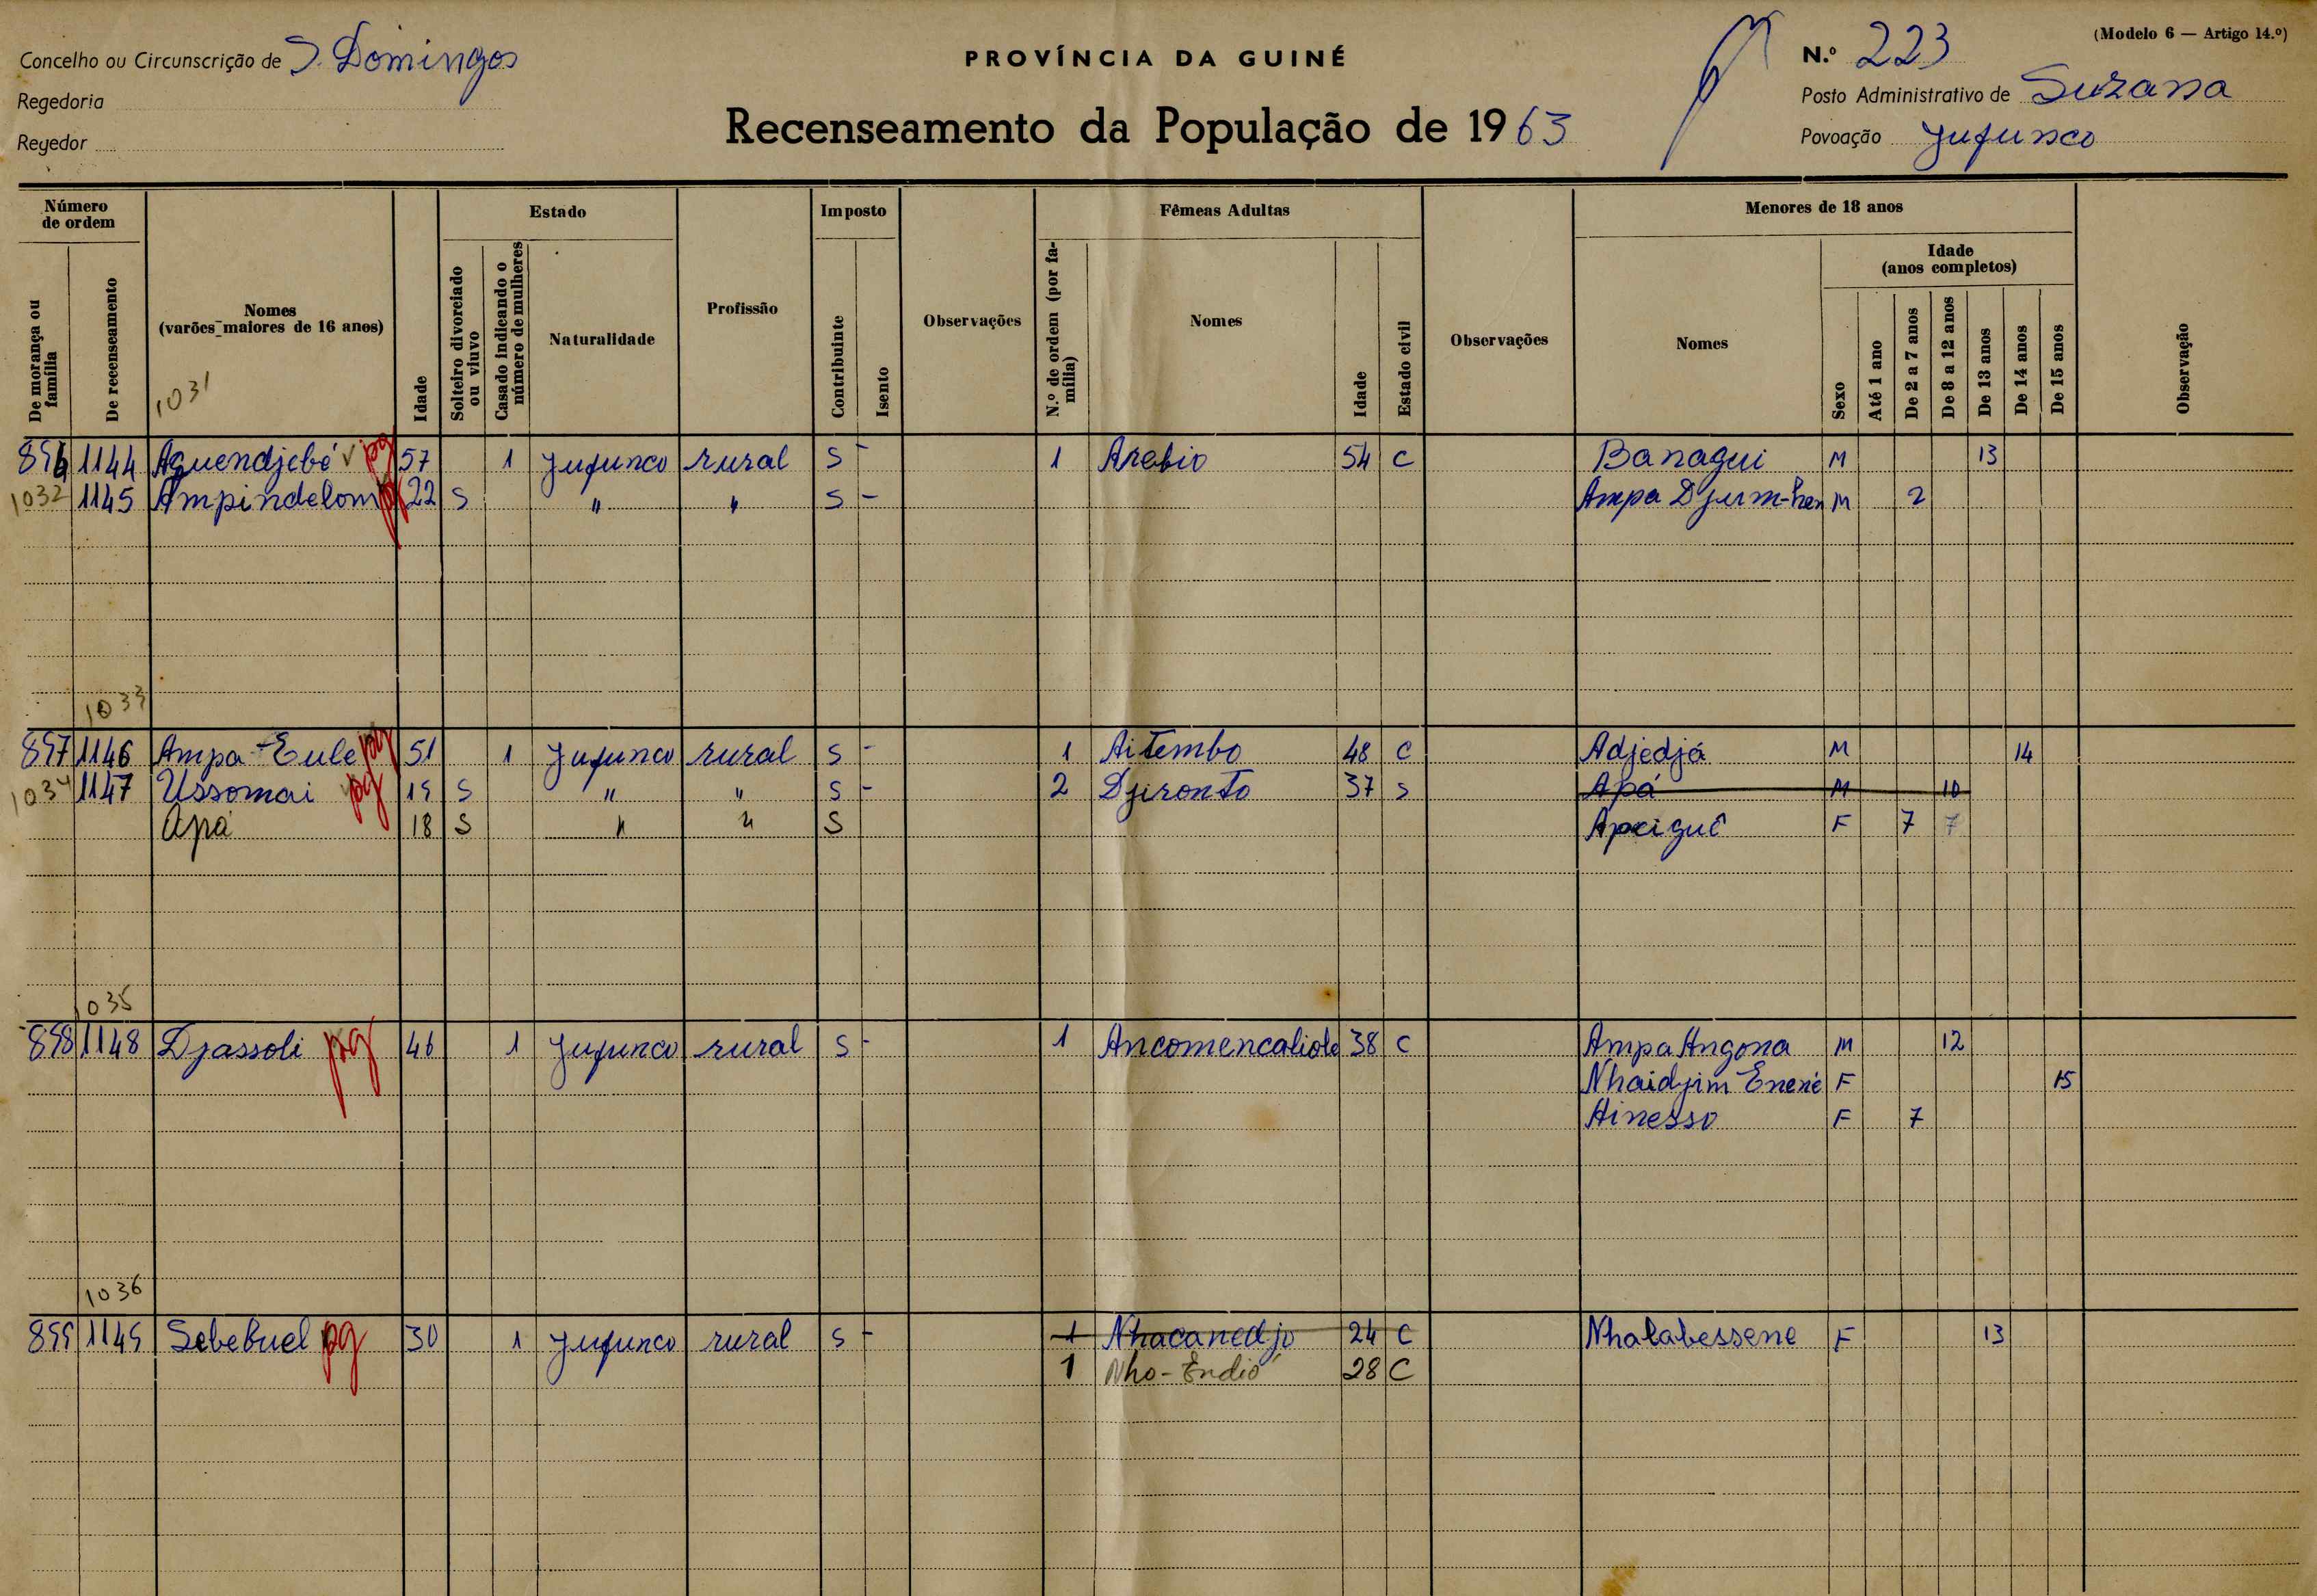 (Modelo 6 — Artigo 14.º)
Concelho ou Circunscrição de S. Domingos
PROVÍNCIA DA GUINÉ
N.º 223
Regedoria
Posto Administrativo de Suzana
Recenseamento da População de 1963
Regedor
Povoação Jufunco
Número de ordem
Estado
Imposto
Fêmeas Adultas
Menores de 18 anos
De morança ou família
De recenseamento
Nomes (varões maiores de 16 anos)
Idade
Solteiro divorciado ou viuvo
Casado indicando o número de mulheres
Naturalidade
Profissão
Contribuinte
Isento
Observações
N.º de ordem (por família)
Nomes
Idade
Estado civil
Observações
Nomes
Sexo
Idade (anos completos)
Até 1 ano
De 2 a 7 anos
De 8 a 12 anos
De 13 anos
De 14 anos
De 15 anos
Observação
1031
896 1144 Aguendjebé pg 57 1 Jufunco rural S - 1 Arebio 54 C Banagui M 13
1032 1145 Ampindelom 22 S " " S - Ampa Djurm-hen M 2
1033
897 1146 Ampa-Eule pg 51 1 Jufunco rural S - 1 Aitembo 48 C Adjedjá M 14
1034 1147 Ussomai pg 19 S " " S - 2 Djironto 37 S Apá M 10
Apá 18 S " " S Apeiguê F 7 7
1035
898 1148 Djassoli pg 46 1 Jufunco rural S - 1 Ancomencaliole 38 C Ampa Angona M 12
Nhaidjim Enené F 15
Ainesso F 7
1036
899 1149 Sebebuel pg 30 1 Jufunco rural S - 1 Nhacanedjo 24 C Nhalabessene F 13
1 Nho-Endió 28 C